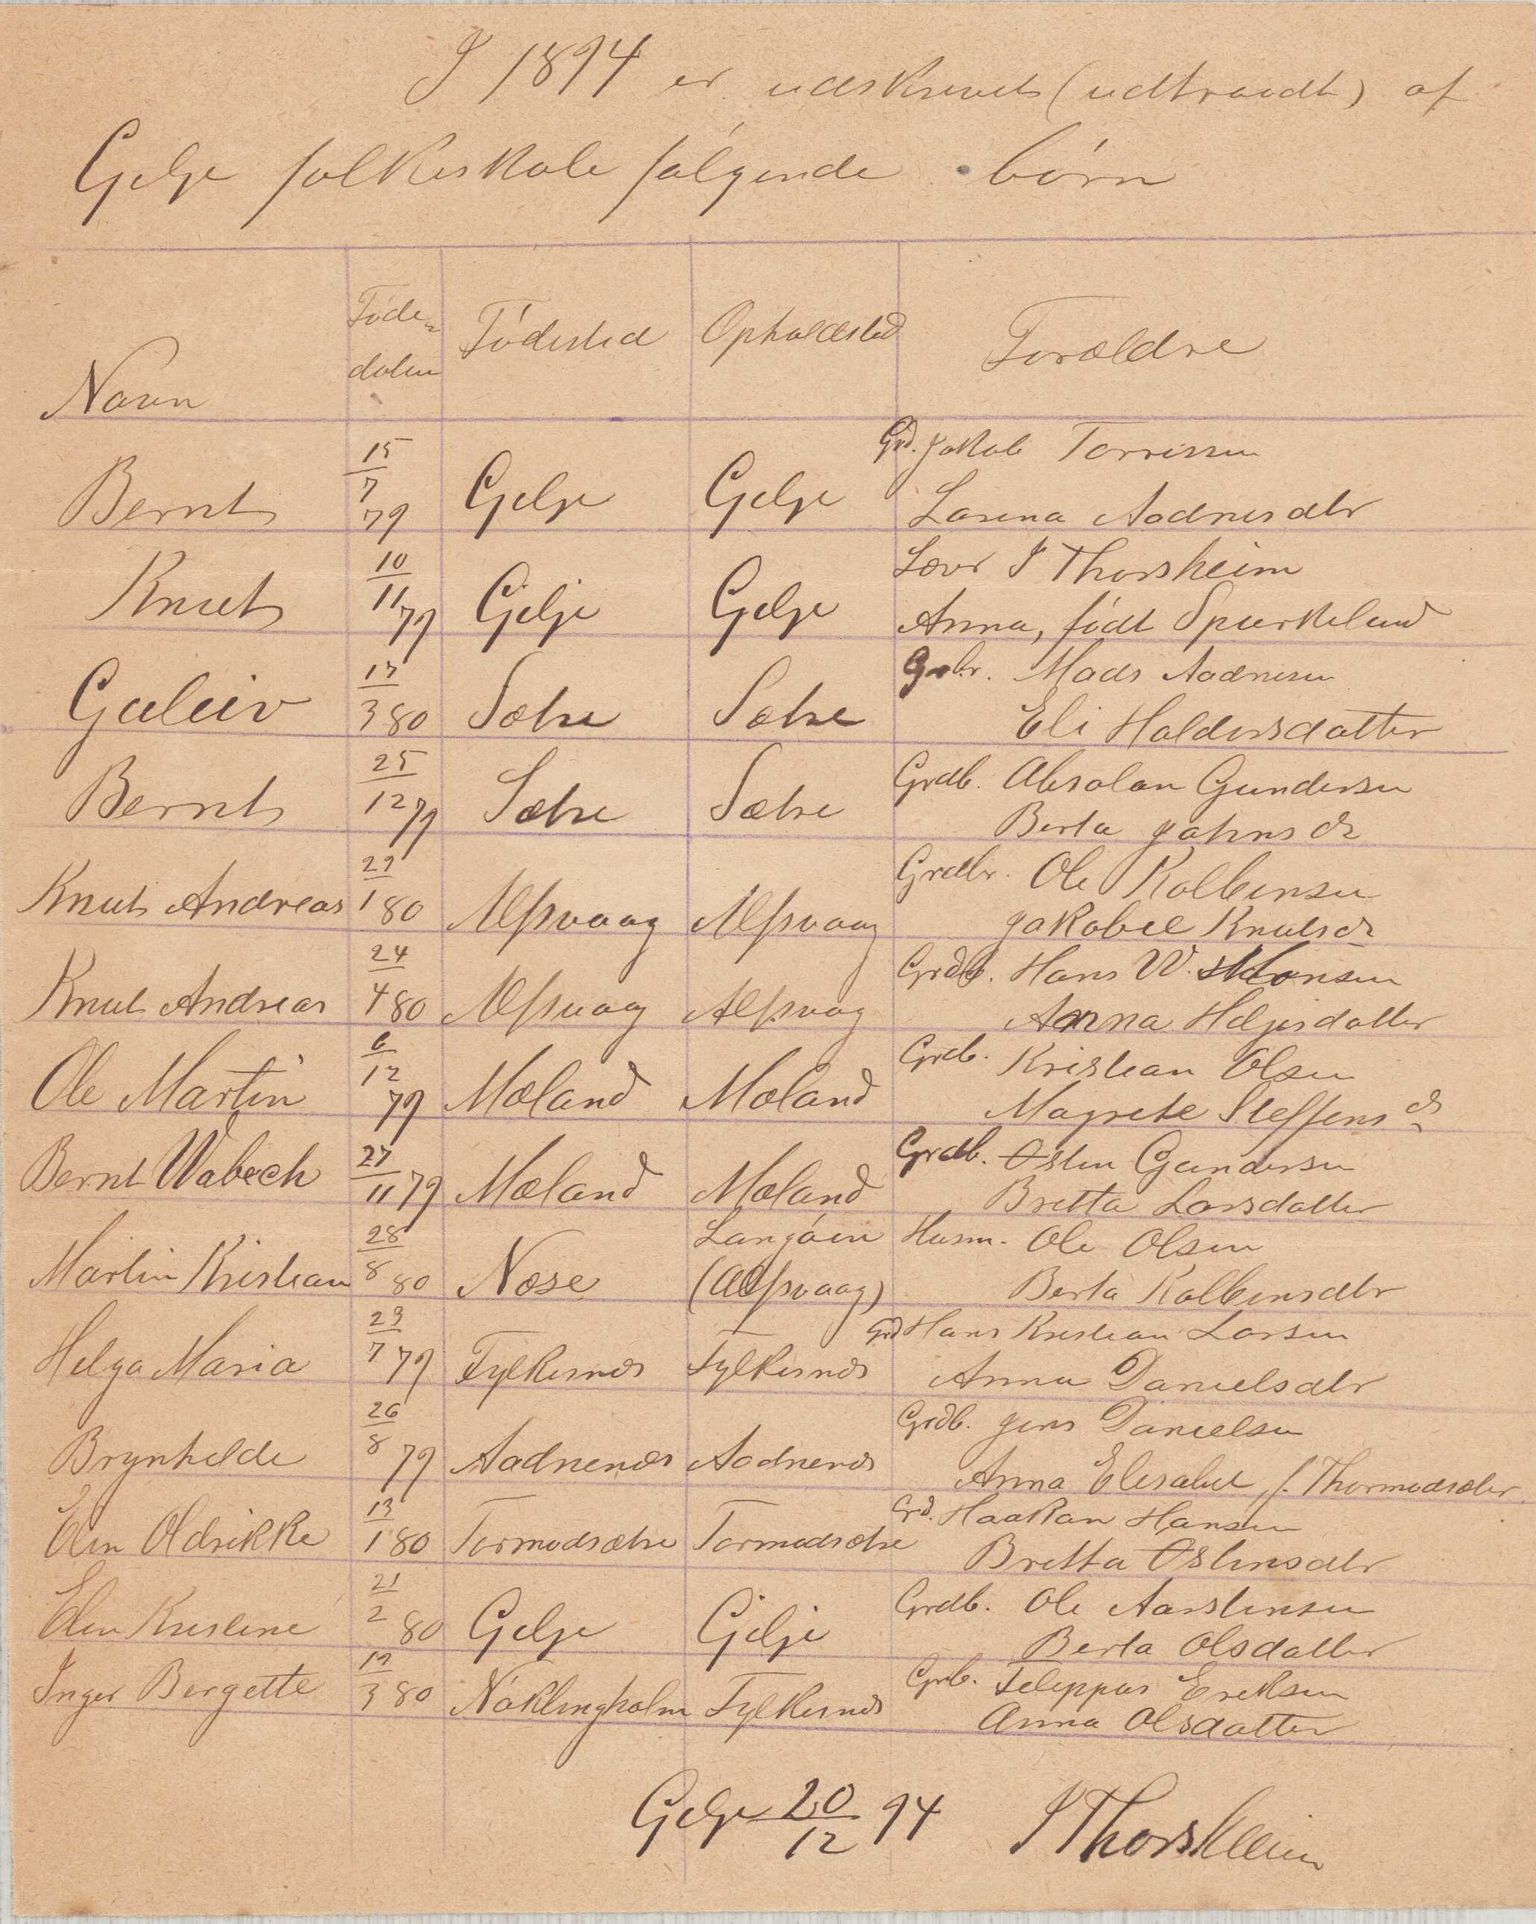 I 1894 er udskrevet (udtraadt) af
Gilje folkeskole følgende børn
Navn | Føde-datum | Fødested | Opholdsted | Forældre
Bernt | 15/7 79 | Gilje | Gilje | Grd. Jakob Torrissen
Lasena Aadnesdtr
Knut | 10/11 79 | Gilje | Gilje | Lærer I Thorsheim
Anna, født Spurkeland
Guleiv | 17/3 80 | Sætre | Sætre | Grdbr. Mads Aadnesen
Eli Haldorsdatter
Bernt | 25/12 79 | Sætre | Sætre | Grdb. Absolon Gundersen
Berta Johnsdr
Knut Andreas | 29/1 80 | Alfsvaag | Alfsvaag | Grdbr. Ole Kolbensen
Jakobee Knutsdr
Knut Andreas | 24/4 80 | Alfsvaag | Alfsvaag | Grdb. Hans W. Monsen
Anna Helgesdatter
Ole Martin | 6/12 79 | Mæland | Mæland | Grdb. Kristian Olsen
Magrete Steffensdr
Bernt Wabech | 27/11 79 | Mæland | Mæland | Grdb. Østen Gundersen
Britta Larsdatter
Martin Kristian | 28/8 80 | Næse | Langøen (Alfsvaag) | Husm. Ole Olsen
Berta Kolbensdtr
Helga Maria | 29/7 79 | Fylkesnes | Fylkesnes | Grd Hans Kristian Larsen
Anna Danielsdtr
Brynhilde | 26/8 79 | Aadnenes | Aadnenes | Grdb. Jens Danielsen
Anna Elisabet f. Thormodsæter
Elen Oldrikke | 13/1 80 | Tormodsætre | Tormodsætre | Grd. Haakon Hansen
Britta Østensdtr
Elen Kristine | 21/2 80 | Gilje | Gilje | Grdb. Ole Aarstensen
Berta Olsdatter
Inger Bergette | 19/3 80 | Nøklingholm | Fylkesnes | Grb. Filippus Eriksen
Anna Olsdatter
Gilje 20/12 94 I Thorsheim